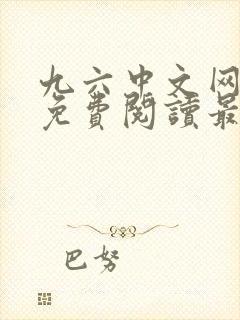 九六中文网
免費閱讀最
巴努